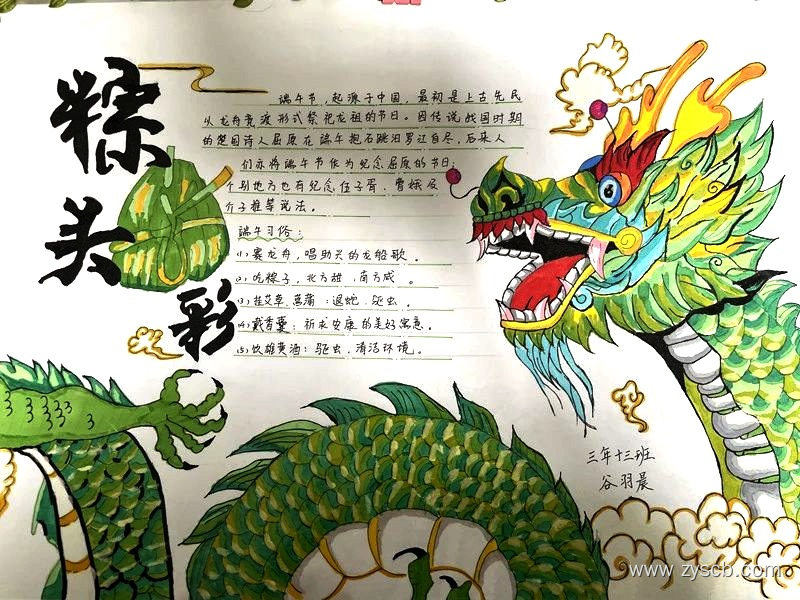 粽头彩
端午节，起源于中国，最初是上古先民
以龙舟竞渡形式祭祀龙祖的节日。因传说战国时期
的楚国诗人屈原在端午抱石跳汨罗江自尽，后来人
们亦将端午节作为纪念屈原的节日；
个别地方也有纪念伍子胥、曹娥及
介子推等说法。
端午习俗：
(1)赛龙舟，唱助兴的龙船歌。
(2)吃粽子，北方甜，南方咸。
(3)挂艾草、菖蒲：退蛇、驱虫。
(4)戴香囊：祈求安康的美好寓意。
(5)饮雄黄酒：驱虫，清洁环境。
三年十三班
谷羽晨
www.zyscb.com